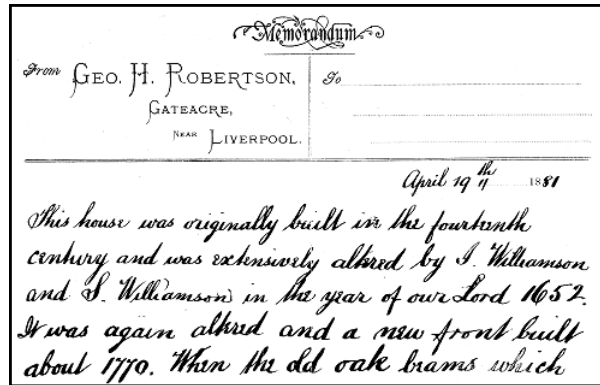 Memorandum.
From GEO. H. ROBERTSON,
GATEACRE,
NEAR LIVERPOOL.
To
April 19th 1881
This house was originally built in the fourteenth
century and was extensively altered by I. Williamson
and S. Williamson in the year of our Lord 1652.
It was again altered and a new front built
about 1770. When the old oak beams which